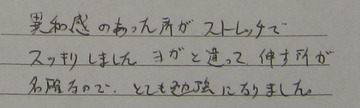 異和感のあった所がストレッチで
スッキリしました ヨガと違って伸す所が
名確なので、とても勉強になりました。